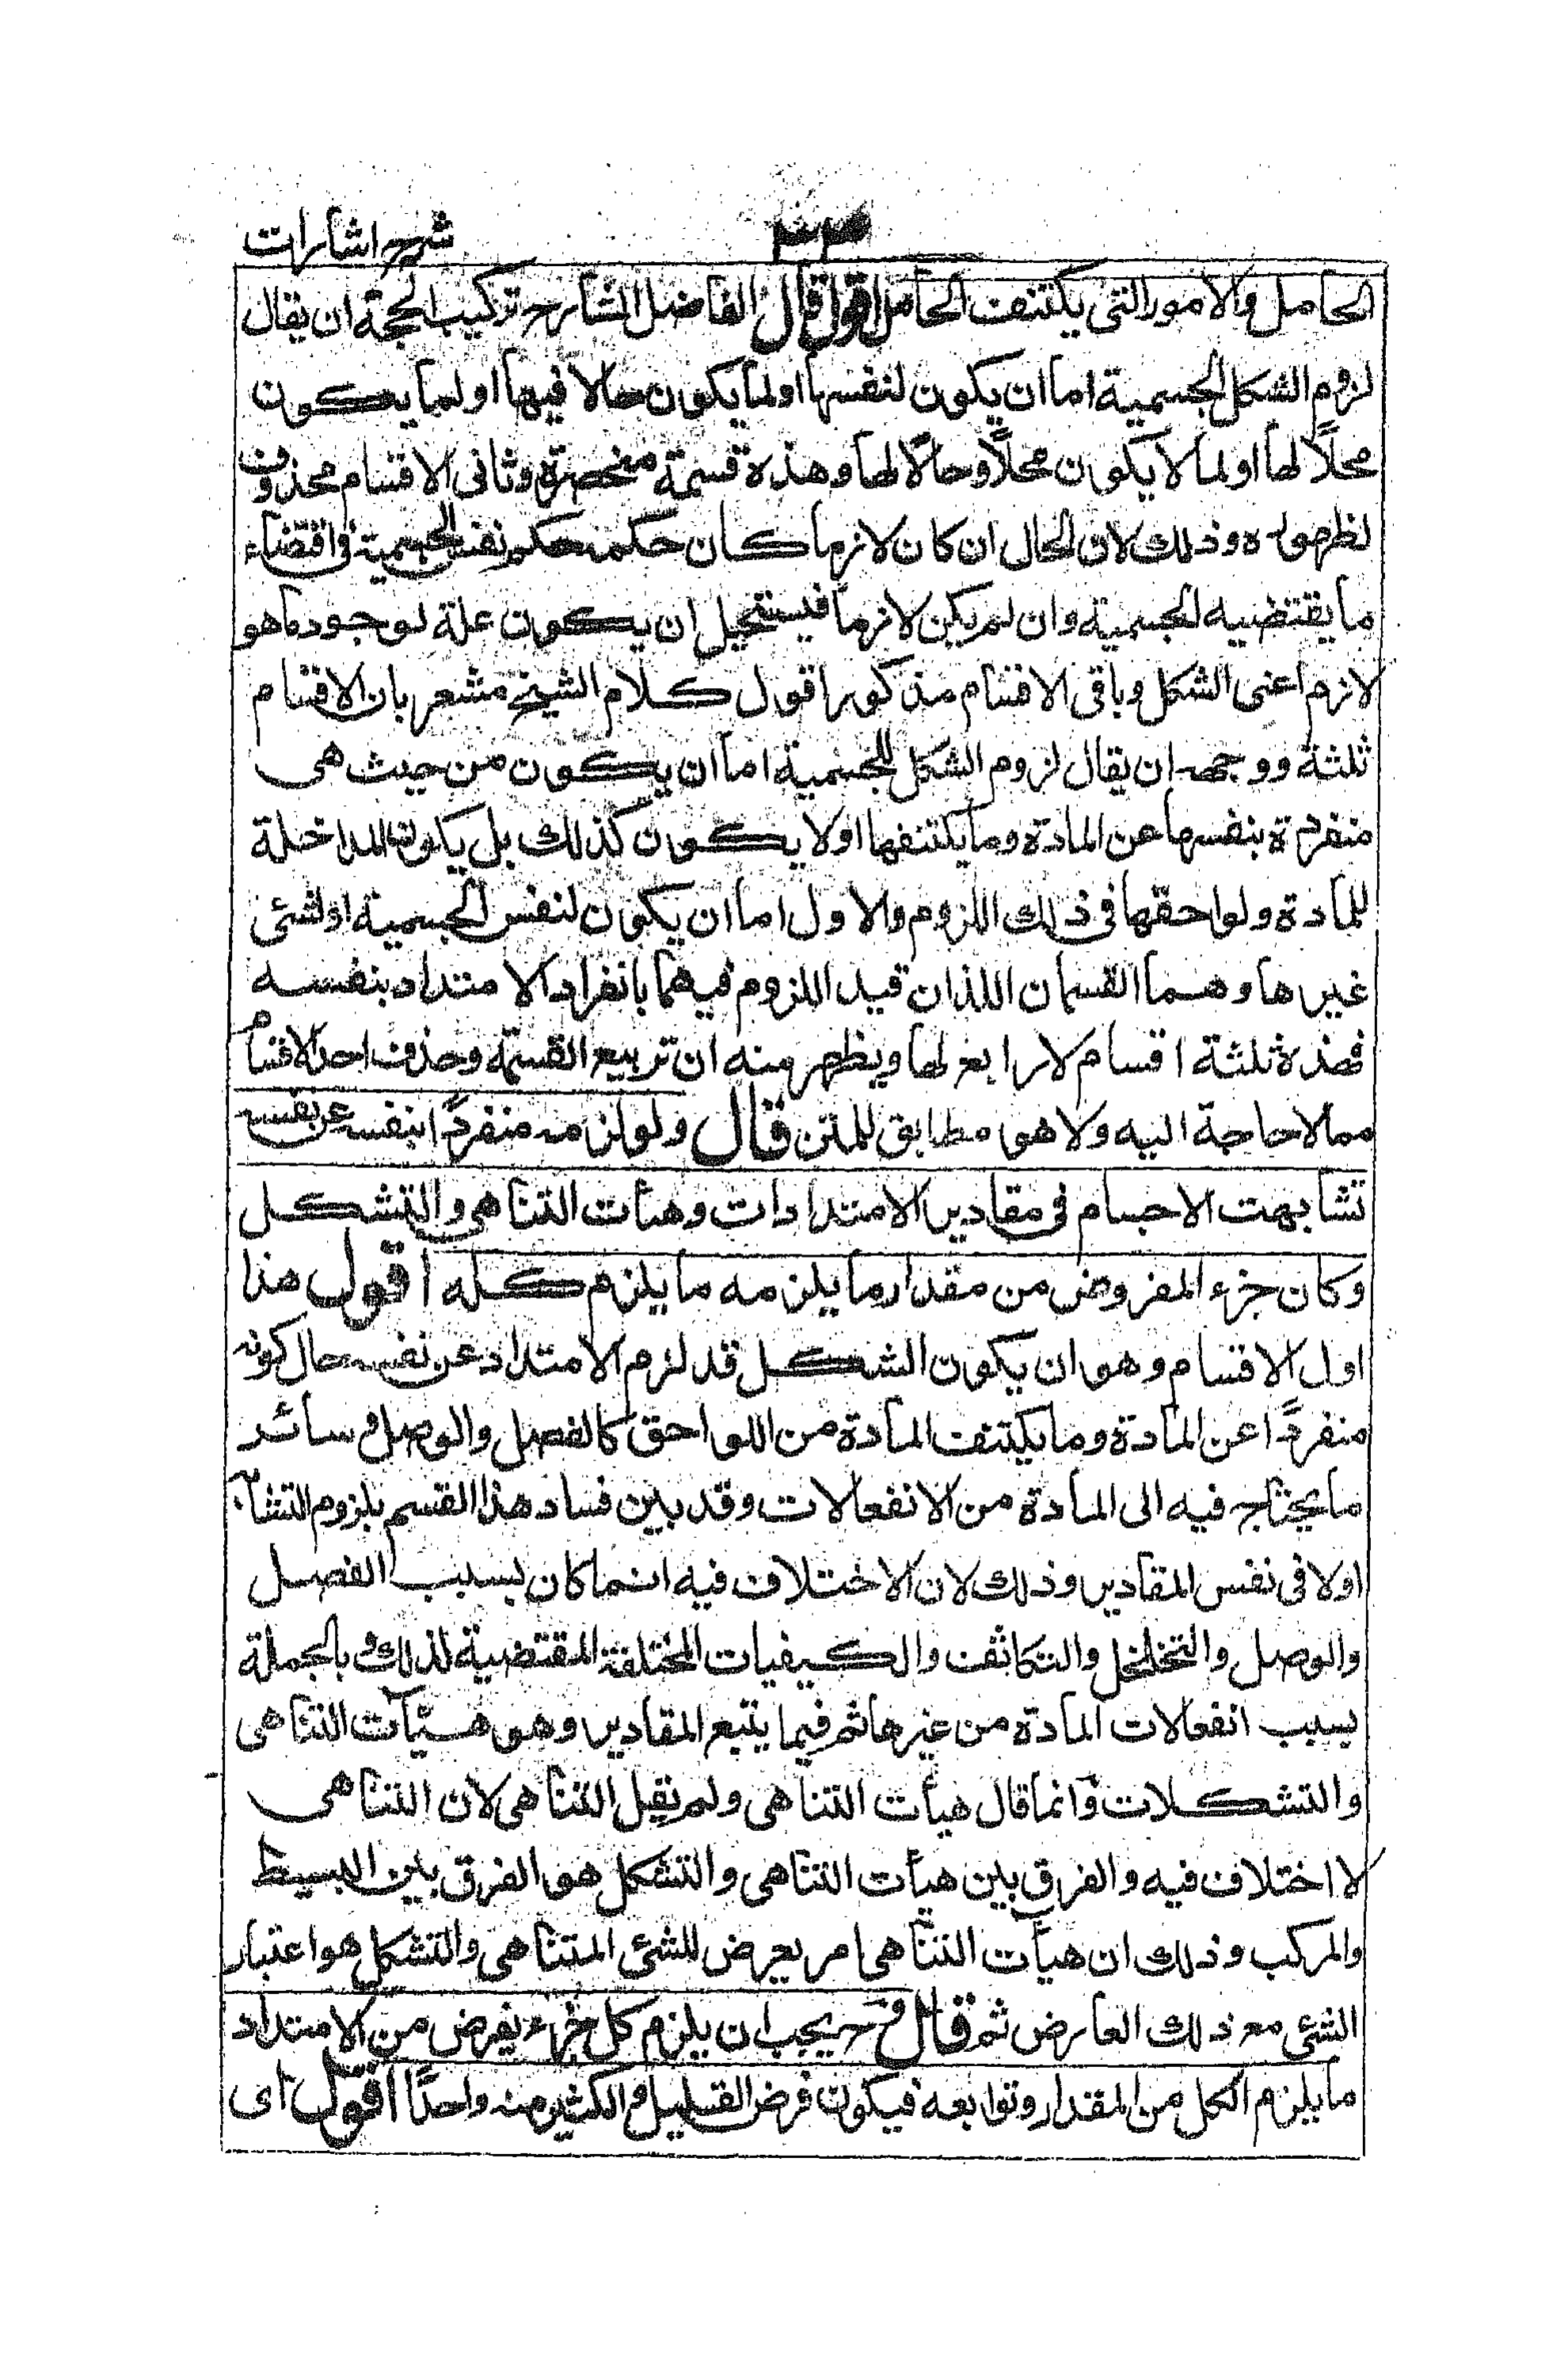 شرح اشارات
الحامل والامور التى يكتنف الحامل اقول قال الفاضل الشارح تركيب الحجة ان يقال
لزوم الشكل للجسمية اما ان يكون لنفسها او لما يكون حالا فيها او لما يكون
محلاً لها او لما لا يكون محلاً وحالًا لها وهذه قسمة منحصرة وثانى الاقسام محذوف
لظهوره وذلك لان الحال ان كان لازما كان حكمه حكم نفس الجسمية فى اقتضاء
ما يقتضيه الجسمية وان لم يكن لازما فيستحيل ان يكون علة لوجود ما هو
لازم اعنى الشكل وباقى الاقسام مذكور اقول كلام الشيخ مشعر بان الاقسام
ثلثة ووجهه ان يقال لزوم الشكل للجسمية اما ان يكون من حيث هى
منفردة بنفسها عن المادة وما يكتنفها او لا يكون كذلك بل يكون المداخلة
للمادة ولواحقها فى ذلك اللزوم والاول اما ان يكون لنفس الجسمية او لشئ
غيرها وهما القسمان اللذان قيد اللزوم فيهما بانفراد الامتداد بنفسه
فهذه ثلثة اقسام لا رابع لها ويظهر منه ان تربيع القسمة وحذف احد الاقسام
مما لا حاجة اليه ولا هو مطابق للمتن قال ولو لزمه منفردًا بنفسه عن نفسه
تشابهت الاجسام فى مقادير الامتدادات وهيأت التناهى والتشكل
وكان جزء المفروض من مقدار ما يلزمه ما يلزم كله اقول هذا
اول الاقسام وهو ان يكون الشكل قد لزم الامتداد عن نفسه حال كونه
منفردًا عن المادة وما يكتنف المادة من اللواحق كالفصل والوصل وسائر
ما يحتاج فيه الى المادة من الانفعالات وقد بين فساد هذا القسم بلزوم التشابه
اولا فى نفس المقادير وذلك لان الاختلاف فيه انما كان بسبب الفصل
والوصل والتخلخل والتكاثف والكيفيات المختلفة المقتضية لذلك وبالجملة
بسبب انفعالات المادة من غيرها ثم فيما يتبع المقادير وهو هيئآت التناهى
والتشكلات وانما قال هيأت التناهى ولم يقل التناهى لان التناهى
لا اختلاف فيه والفرق بين هيأت التناهى والتشكل هو الفرق بين البسيط
والمركب وذلك ان هيآت التناهى امر يعرض للشئ المتناهى والتشكل هو اعتبار
الشئ مع ذلك العارض ثم قال وح يجب ان يلزم كل جزء يفرض من الامتداد
ما يلزم الكل من المقدار وتوابعه فيكون فرض القليل والكثير منه واحدًا اقول اى